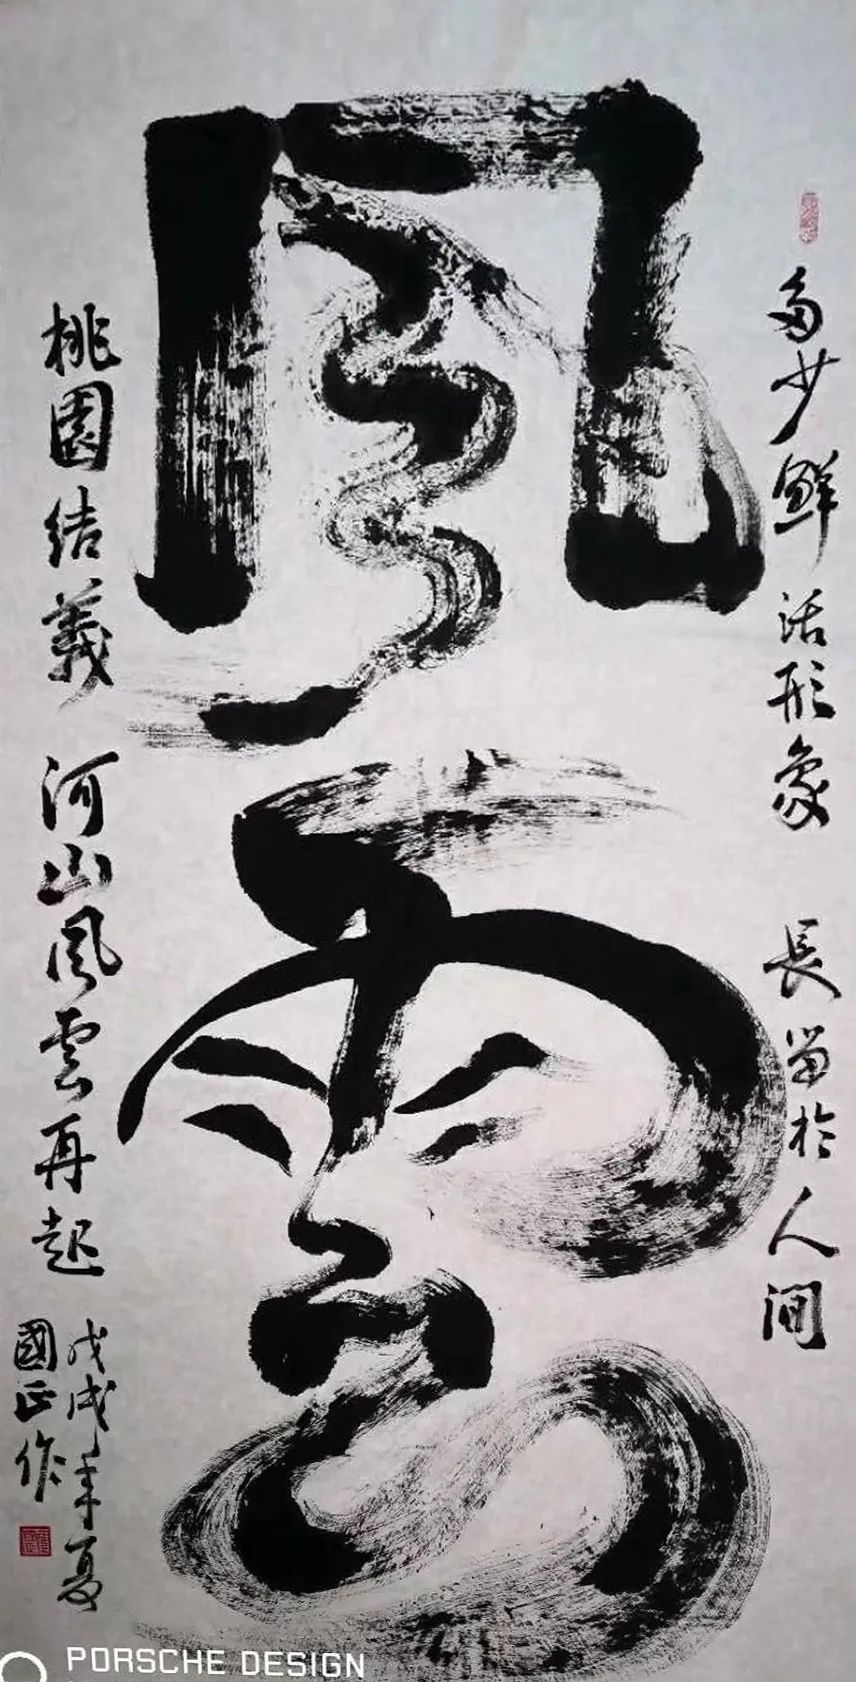 風雲
多少鮮活形象 長留於人间
桃園结義 河山風雲再起
戊戌年夏
國正作
PORSCHE DESIGN